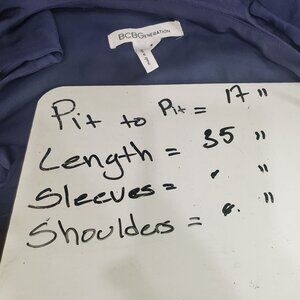 BCBGENERATION
Pit to Pit = 17 "
Length = 35 "
Sleeves = . "
Shoulders = . "